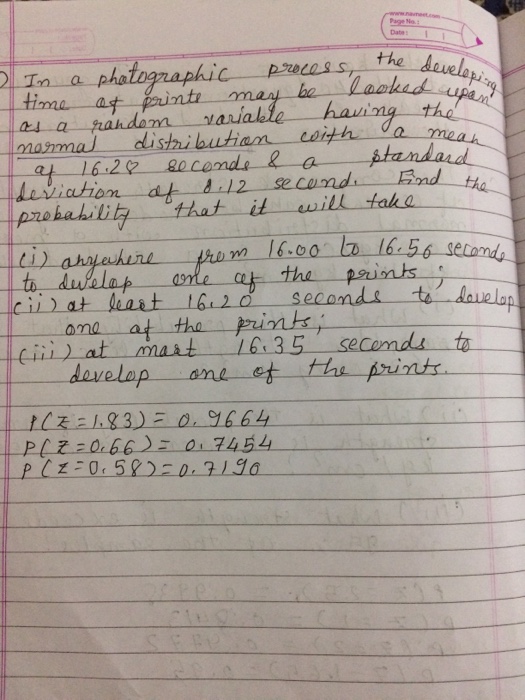 www.navneet.com
Page No.:
Date:
In a photographic process, the developing
time of prints may be looked upon
as a random variable having the
normal distribution with a mean
of 16.28 seconds & a standard
deviation of 0.12 second. Find the
probability that it will take
(i) anywhere from 16.00 to 16.56 seconds
to develop one of the prints;
(ii) at least 16.20 seconds to develop
one of the prints;
(iii) at most 16.35 seconds to
develop one of the prints.
P(Z=1.83) = 0.9664
P(Z=0.66) = 0.7454
P(Z=0.58) = 0.7190